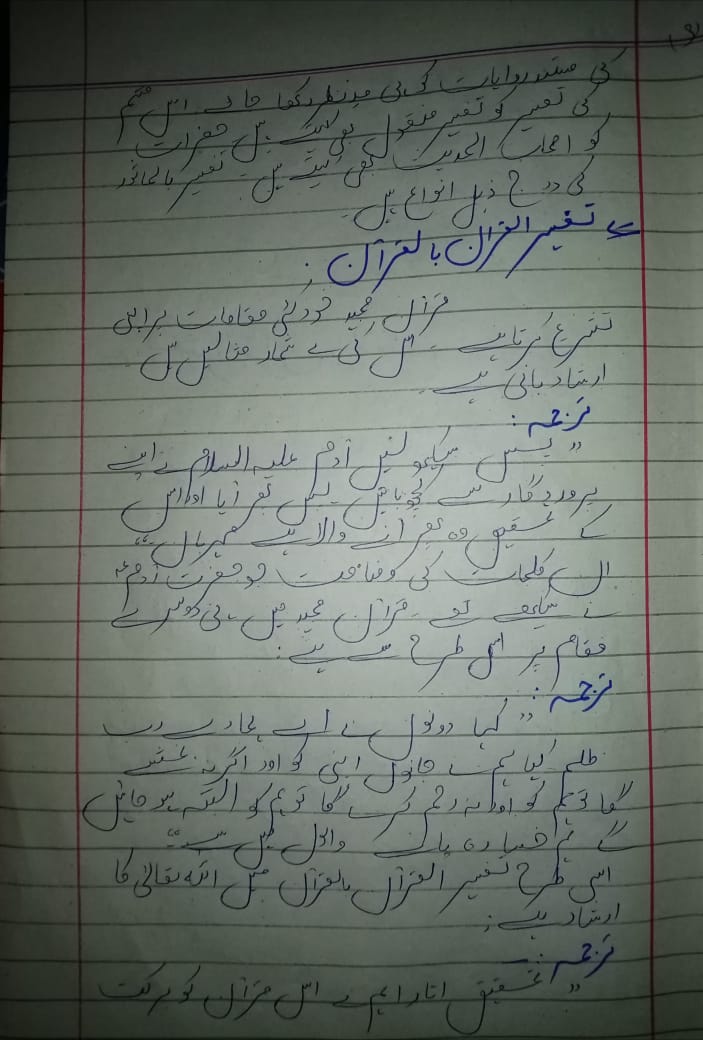 کی مستند روایات کو بی مدِنظر رکھا جائے اس قسم
کی تفسیر کو تفسیر منقول بھی کہتے ہیں حضرات
کو الحدیث بھی کہتے ہیں۔ تفسیر بالماثور
کی درج ذیل انواع ہیں۔
تفسیر القرآن بالقرآن :
قرآن مجید خود کئی مقامات پر اپنی
تشریح کرتا ہے۔ اس کی بے شمار مثالیں ہیں۔
ارشاد بانی ہے۔
ترجمہ :
"پس سیکھ لئیں آدم علیہ السلام نے اپنے
پروردگار سے کچھ باتیں پس پھر آیا اوپر اس
کے تحقیق وہ پھر آنے والا ہے مہربان"
ان کلمات کی وضاحت جو حضرت آدمؑ
نے سیکھے تھے۔ قرآن مجید میں ہی دوسرے
مقام پر اس طرح سے ہے :
ترجمہ :
"کہا دونوں نے اے ہمارے رب
ظلم کیا ہم نے جانوں اپنی کو اور اگر نہ بخشے
گا تو ہم کو اور نہ رحم کرے گا تو ہم کو البتہ ہو جائیں
گے ہم خسارہ پانے والوں میں سے"
اسی طرح تفسیر القرآن بالقرآن میں اللہ تعالیٰ کا
ارشاد ہے :
ترجمہ :
"تحقیق اتارا ہم نے اس قرآن کو برکت